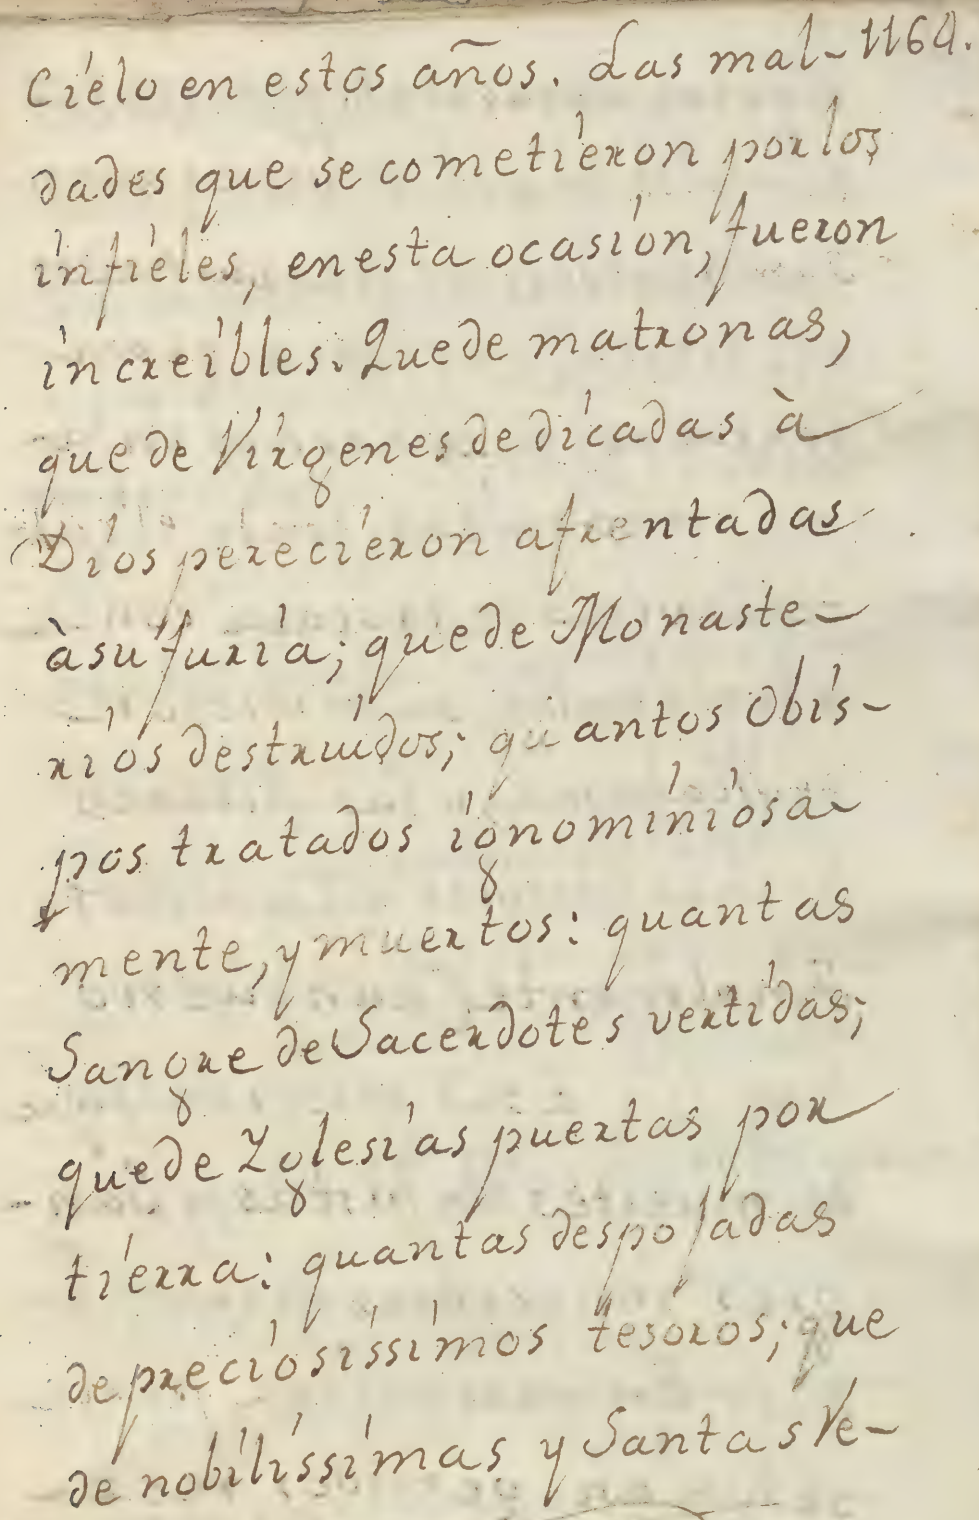 Cielo en estos años. Las mal- 1164.
dades que se cometieron por los
infieles, en esta ocasion, fueron
increibles. Que de matronas,
que de Virgenes dedicadas à
Dios perecieron afrentadas
à su furia; que de Monaste-
rios destruidos; quantos Obis-
pos tratados ignominiosa-
mente, y muertos: quantas
Sangre de Sacerdotes vertidas;
que de Yglesias puertas por
tierra: quantas despojadas
de preciosissimos tesoros; que
de nobilissimas y Santas Ve-